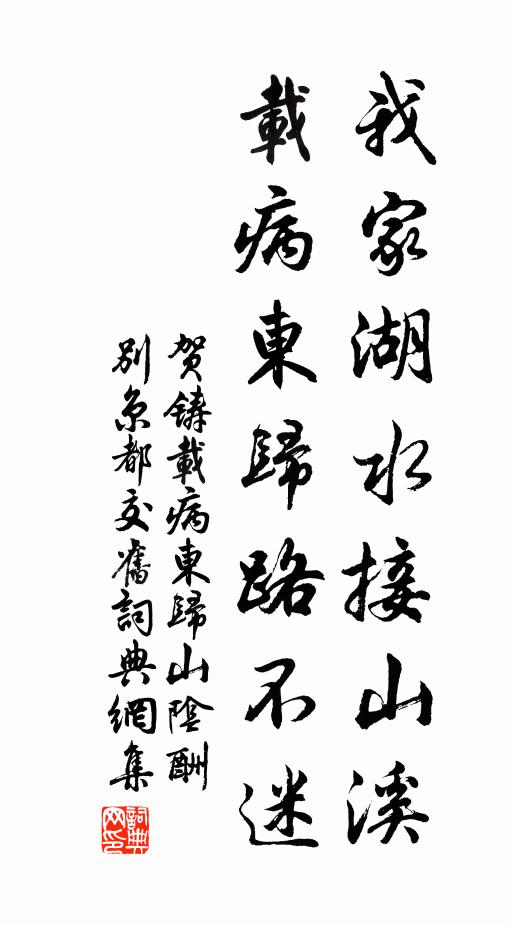 我家湖水接山溪
載病東歸路不迷
賀铸載病東歸山陰酬
别京都交舊詞典網集
詞典
网印